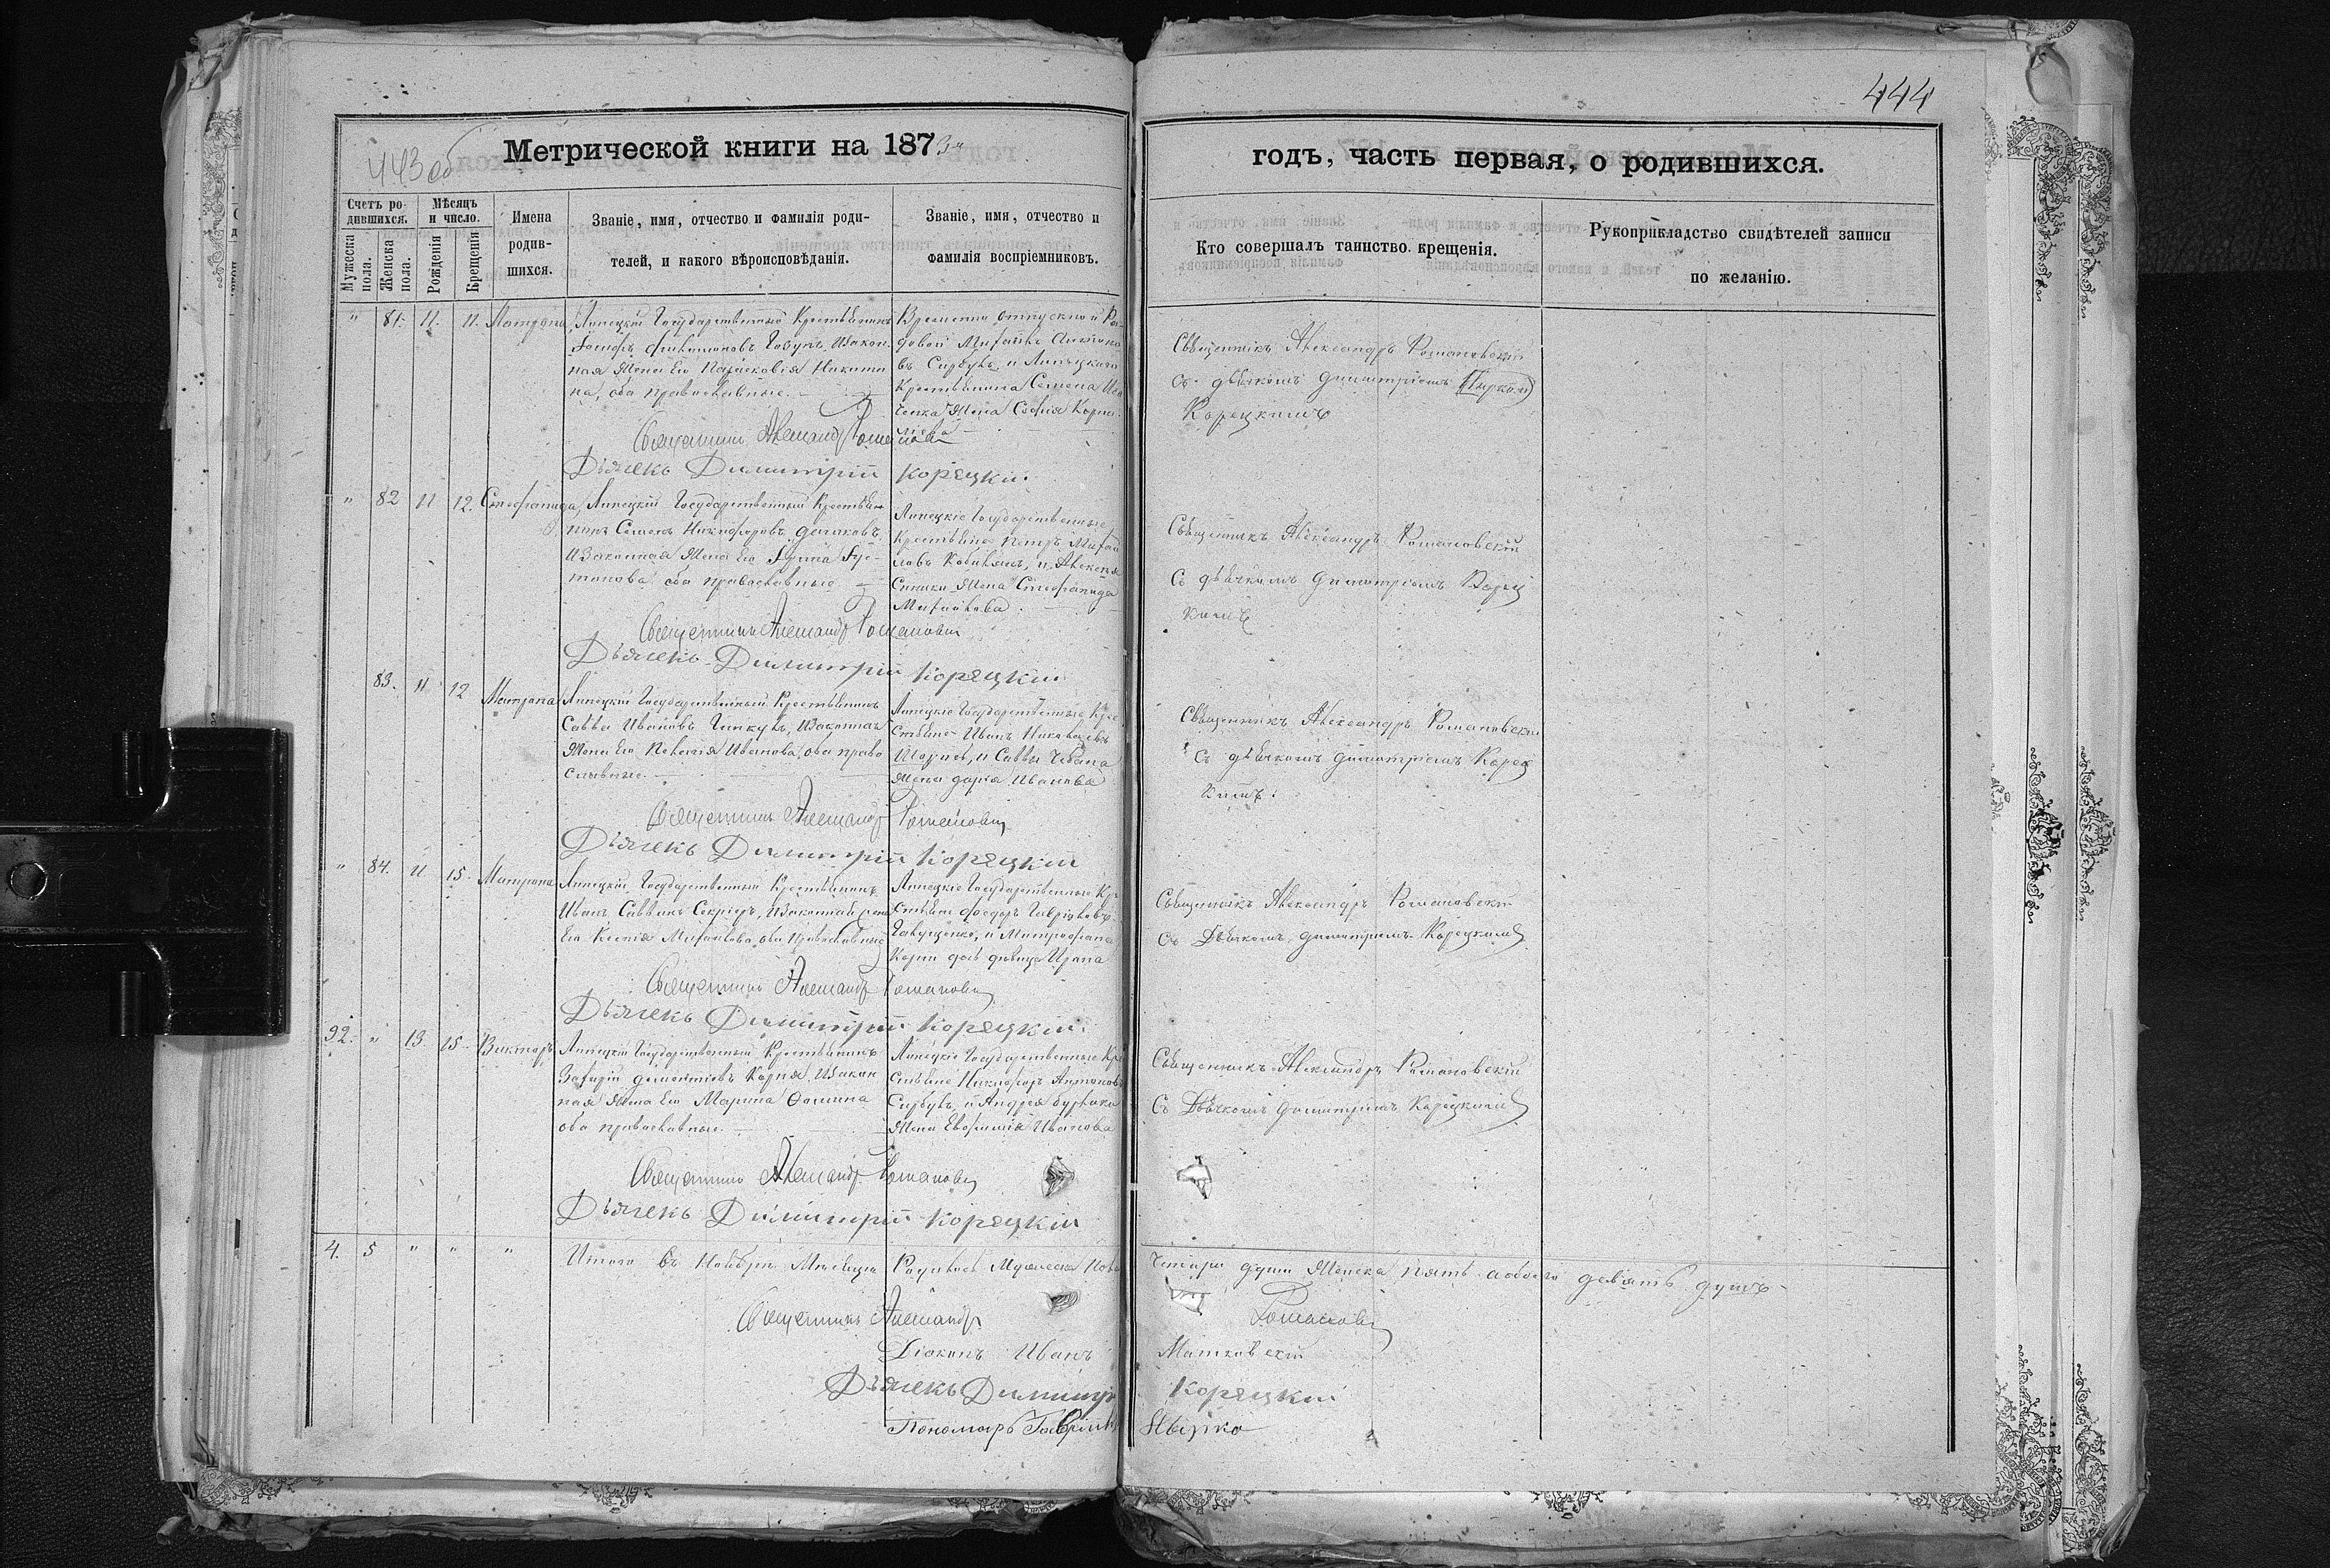 444
443 об
Метрической книги на 1873
годъ, часть первая, о родившихся.
Счетъ родившихся.
Мѣсяцъ и число.
Мужеска пола.
Женска пола.
Рожденія
Крещенія
Имена родившихся.
Званіе, имя, отчество и фамилія родителей, и какого вѣроисповѣданія.
Званіе, имя, отчество и фамилія воспріемниковъ.
Кто совершалъ таинство крещенія.
Рукоприкладство свидѣтелей записи по желанію.
" 81. 11. 11. Матрона
Липецкій Государственный Крестьянинъ
закон
ная жена его Парасковія Никити
на, оба православные.
Временно отпускной Ря
довой Михаилъ Антоно
въ Сырбулъ, и Липецкаго
Крестьянина Семена
жена Софія Корни
лиева
Священникъ Александръ Романовскій
съ дьячкомъ Димитріемъ
Корецкимъ
Священникъ Александръ Романовскій
Дьячекъ Димитрій Корецкій.
" 82 11 12. Стефанида
Липецкій Государственный Крестья
нинъ Семенъ Никифоровъ
и законная жена его
оба православные
Липецкіе Государственные
Крестьяне Петръ Михай
ловъ и Алексѣя
жена Стефанида
Михайлова.
Священникъ Александръ Романовскій
Съ дьячкомъ Димитріемъ Корец
кимъ
Священникъ Александръ Романовскій
Дьячекъ Димитрій Корецкій
83. 11 12 Матрона
Липецкій Государственный Крестьянинъ
Савва Ивановъ и законная
жена его Пелагія Иванова, оба право
славные.
Липецкіе Государственные Кре
стьяне Иванъ Николаевъ
и Саввы Чебана
жена Дарія Иванова
Священникъ Александръ Романовскій
съ дьячкомъ Димитріемъ Корец
кимъ.
Священникъ Александръ Романовскій
Дьячекъ Димитрій Корецкій
" 84. 11 15. Матрона
Липецкій Государственный Крестьянинъ
Иванъ Саввинъ и законная жена
его Ксенія Михайлова, оба православные
Липецкіе Государственные Кре
стьяне Федоръ Гавриловъ
и Митрофана
девица Ирина
Священникъ Александръ Романовскій
Съ Дьячкомъ Димитріемъ Корецкимъ
Священникъ Александръ Романовскій
Дьячекъ Димитрій Корецкій.
92. " 13. 15. Викторъ
Липецкій Государственный Крестьянинъ
Захарій Дементіевъ и закон
ная жена его Марина Фомина
оба православные.
Липецкіе Государственные Кре
стьяне Никифоръ Антоновъ
Сырбулъ, и Андрея
жена Евфимія Иванова
Священникъ Александръ Романовскій
Съ Дьячкомъ Димитріемъ Корецкимъ
Священникъ Александръ Романовскій
Дьячекъ Димитрій Корецкій
4. 5 " " " Итого въ Ноябрѣ Мѣсяцѣ Родилось Мужеска пола
четыри души женска пять а обоего девять душъ
Священникъ Александръ Романовскій
Діаконъ Иванъ Матковскій
Дьячекъ Димитрій Корецкій
Пономарь Гавріилъ